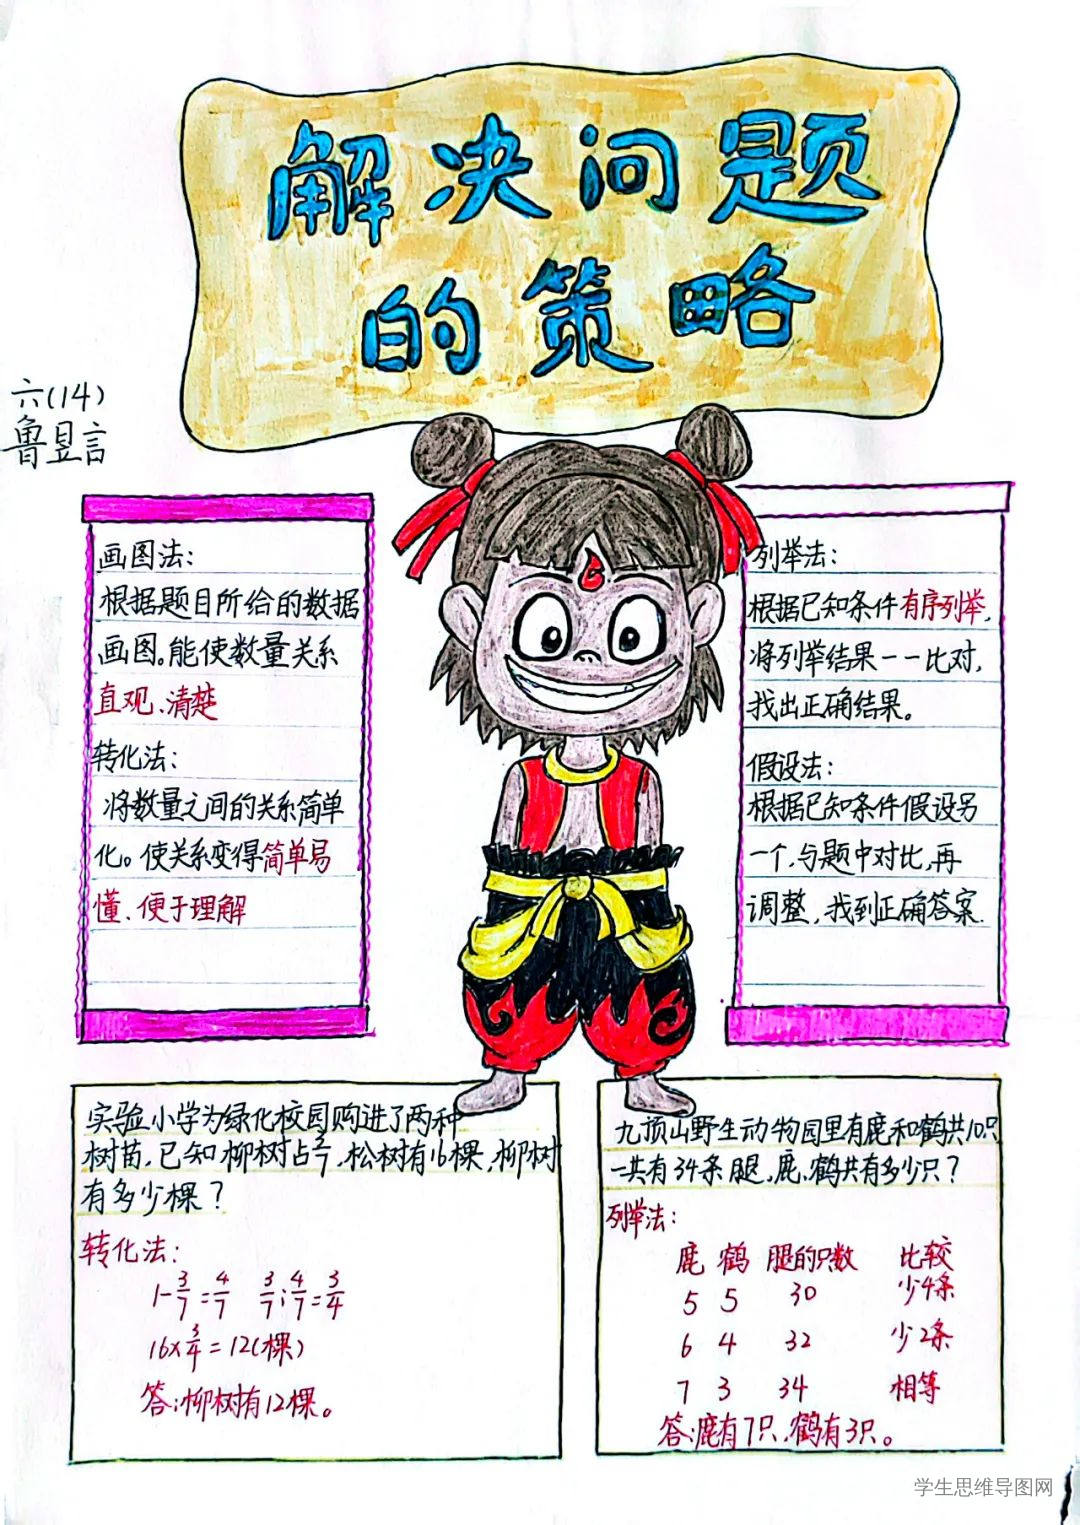 解决问题
的策略
六(14)
鲁昱言
画图法:
根据题目所给的数据
画图。能使数量关系
直观、清楚
转化法:
将数量之间的关系简单
化。使关系变得简单易
懂、便于理解
列举法:
根据已知条件有序列举,
将列举结果一一比对,
找出正确结果。
假设法:
根据已知条件假设另
一个,与题中对比,再
调整,找到正确答案.
实验小学为绿化校园购进了两种
树苗,已知柳树占3/7,松树有16棵,柳树
有多少棵?
转化法:
1-3/7=4/7 3/7:4/7=3/4
16×3/4=12(棵)
答:柳树有12棵。
九顶山野生动物园里有鹿和鹤共10只
一共有34条腿,鹿、鹤共有多少只?
列举法:
鹿 鹤 腿的只数 比较
5 5 30 少4条
6 4 32 少2条
7 3 34 相等
答:鹿有7只,鹤有3只。
学生思维导图网